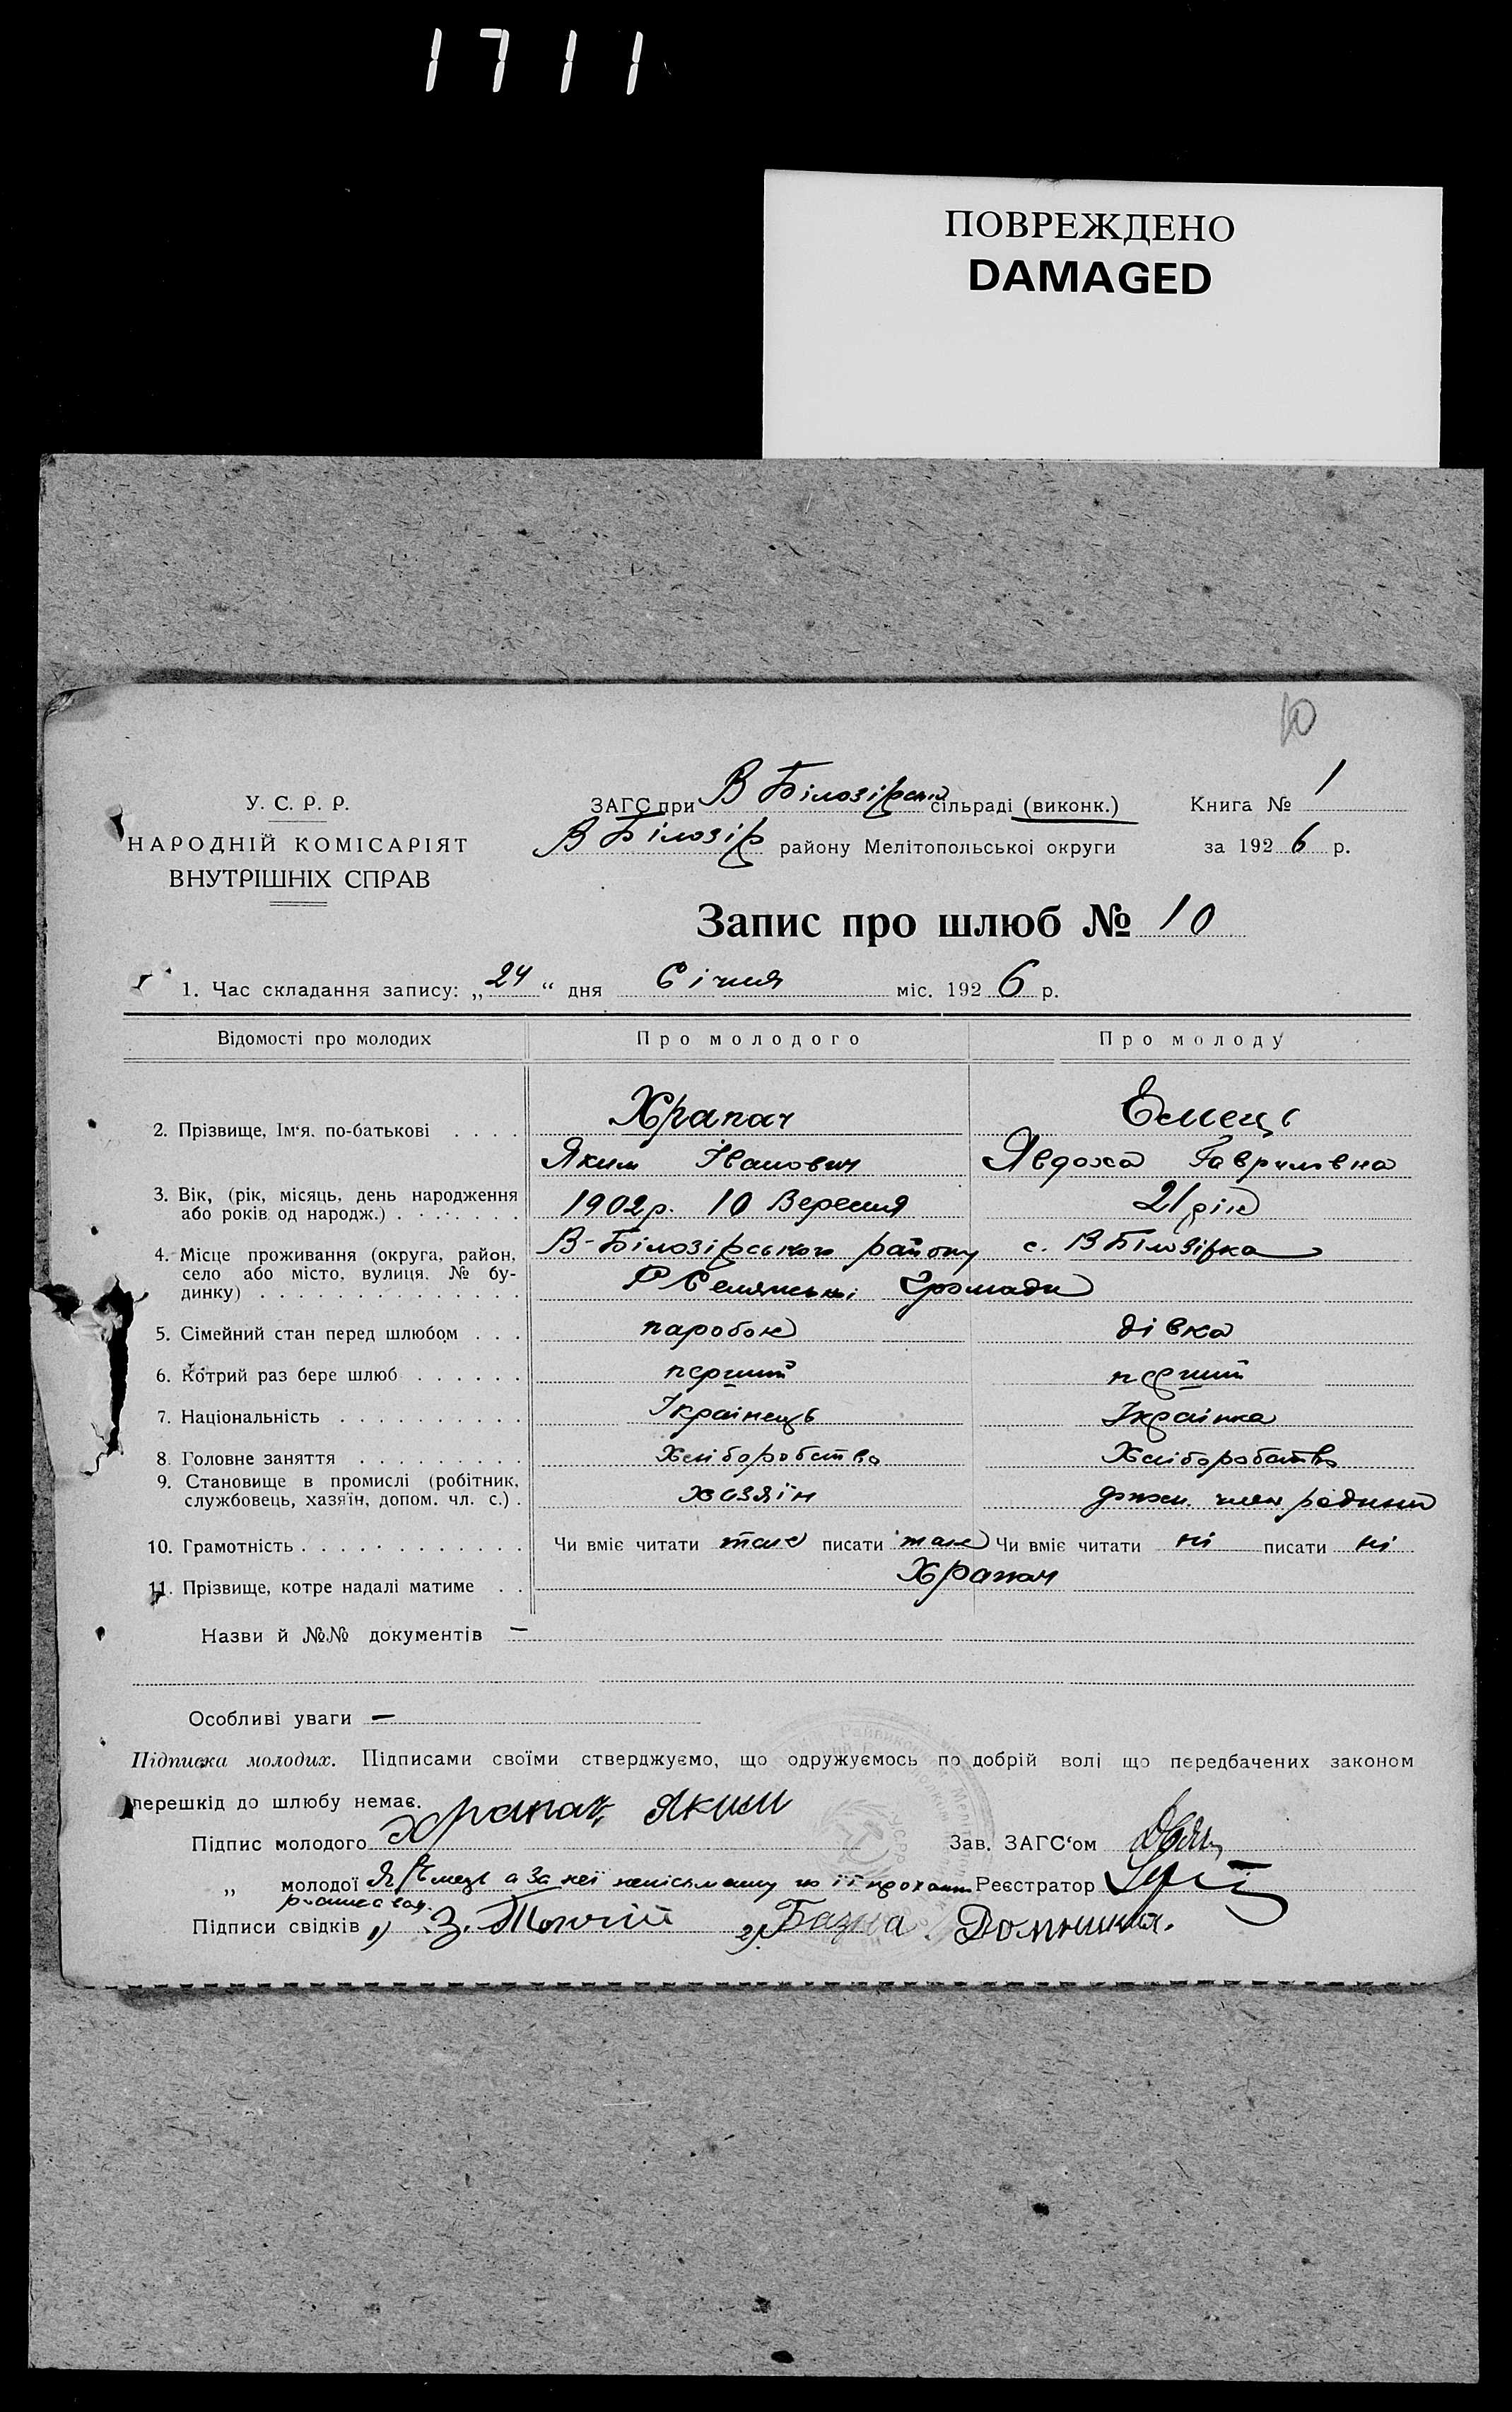 1711
ПОВРЕЖДЕНО
DAMAGED
10
У. С. Р. Р.
НАРОДНІЙ КОМІСАРІЯТ
ВНУТРІШНІХ СПРАВ
ЗАГС при В Білозірськ сільраді (виконк.) Книга № 1
В Білозір району Мелітопольської округи за 1926 р.
Запис про шлюб № 10
1. Час складання запису: „24“ дня Січня міс. 1926 р.
Відомості про молодих Про молодого Про молоду
2. Прізвище, Ім‘я, по-батькові . . . . Храпач Ємець
Яким Іванович Явдоха Гаврилівна
3. Вік, (рік, місяць, день народження або років од народж.) . . . . . . . 1902 р. 10 Вересня 21 рік
4. Місце проживання (округа, район, село або місто, вулиця. № будинку) . . . . . . . . . . . . . . В-Білозірського району с. В Білозірка
Громади
5. Сімейний стан перед шлюбом . . . паробок дівка
6. Котрий раз бере шлюб . . . . . . перший перший
7. Національність . . . . . . . . . . Українець Українка
8. Головне заняття . . . . . . . . . Хліборобство Хліборобство
9. Становище в промислі (робітник, службовець, хазяїн, допом. чл. с.) . хозяїн член родини
10. Грамотність . . . . . . . . . . . . Чи вміє читати так писати так Чи вміє читати ні писати ні
11. Прізвище, котре надалі матиме . . Храпач
Назви й №№ документів —
Особливі уваги —
Підписка молодих. Підписами своїми стверджуємо, що одружуємось по добрій волі що передбачених законом
перешкід до шлюбу немає.
Підпис молодого Храпач Яким Зав. ЗАГС‘ом
„ молодої Я Ємець а за неї неписьменну по її проханн Реєстратор
Підписи свідків 1) З. 2) Базна